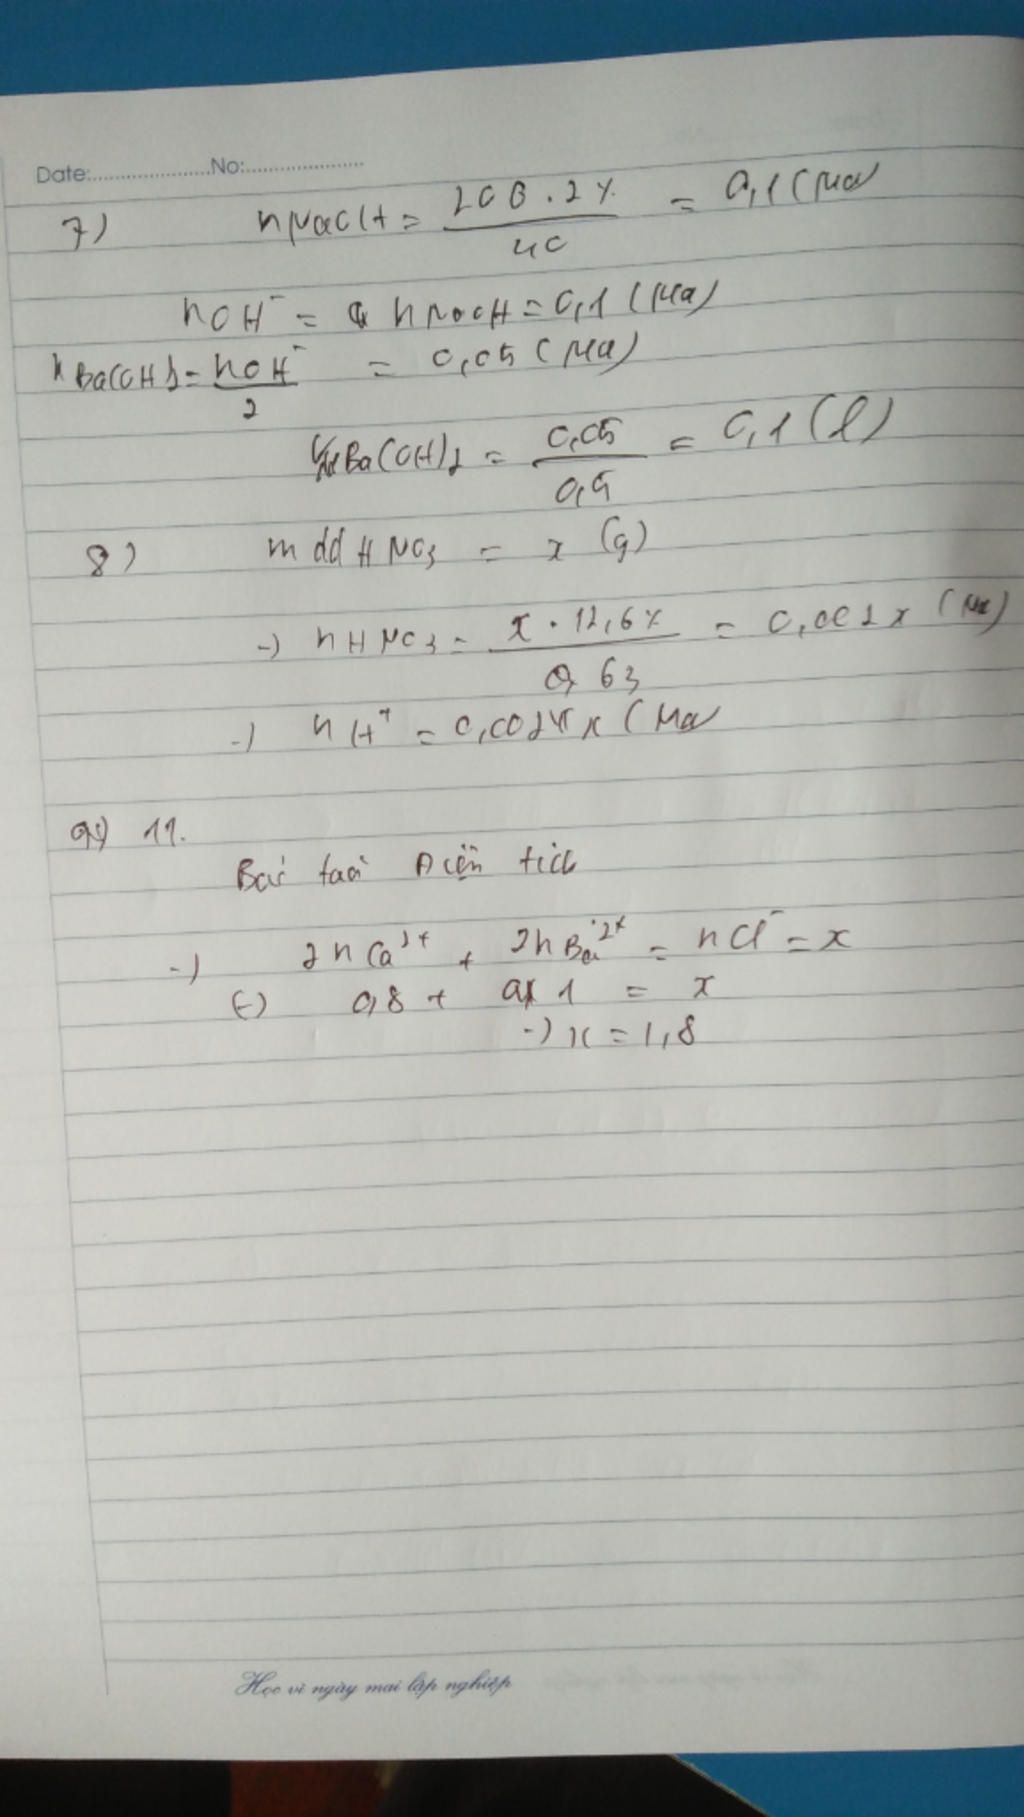 Date:.....................No:....................
7) nNaOH = 200 . 2% / 40 = 0,1 (Mol)
nOH⁻ = nNaOH = 0,1 (Mol)
nBa(OH)2 = nOH⁻ / 2 = 0,05 (Mol)
Ba(OH)2 = 0,05 / 0,5 = 0,1 (l)
8) m dd HNO3 = x (g)
-) nHNO3 = x . 12,6% / 63 = 0,002x (Mol)
-) nH⁺ = x (Mol)
11.
Bảo toàn Điện tích
-) 2nCa²⁺ + 2nBa²⁺ = nCl⁻ = x
(-) 0,8 + 1 = x
-) x = 1,8
Học vì ngày mai lập nghiệp